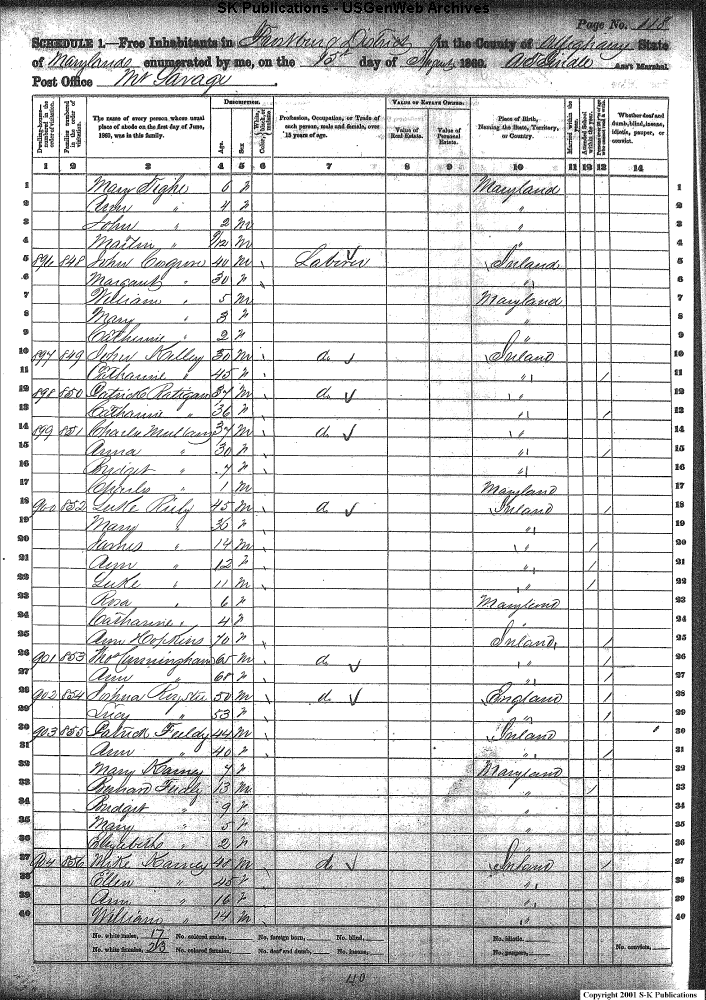 SK Publications - USGenWeb Archives
Page No. 118
SCHEDULE 1.—Free Inhabitants in Frostburg District in the County of Alleghany State
of Maryland enumerated by me, on the 15th day of August 1860. Ass't Marshal.
Post Office Mt Savage
Dwelling-houses—numbered in the order of visitation.
Families numbered in the order of visitation.
The name of every person whose usual place of abode on the first day of June, 1860, was in this family.
DESCRIPTION.
Age.
Sex
Color
Profession, Occupation, or Trade of each person, male and female, over 15 years of age.
VALUE OF ESTATE OWNED.
Value of Real Estate.
Value of Personal Estate.
Place of Birth, Naming the State, Territory, or Country.
Married within the year.
Attended School within the year.
Whether deaf and dumb, blind, insane, idiotic, pauper, or convict.
1 2 3 4 5 6 7 8 9 10 11 12 13 14
1 Mary Tighe 6 f Maryland 1
2 Ann " 4 f " 2
3 John " 2 m " 3
4 Martin " 9/12 m " 4
5 896 848 John Cosgrove 40 m Laborer Ireland 5
6 Margaret " 30 f " 6
7 William " 5 m Maryland 7
8 Mary " 3 f " 8
9 Catherine " 2 f " 9
10 897 849 John Kalley 30 m do Ireland 10
11 Catharine " 45 f " / 11
12 898 850 Patrick Ratigan 37 m do " 12
13 Catharine " 36 f " / 13
14 899 851 Charles Mullany 37 m do " 14
15 Anna " 30 f " / 15
16 Bridget " 7 f " 16
17 Charles " 1 m Maryland 17
18 900 852 Luke Riely 45 m do Ireland / 18
19 Mary " 35 f " 19
20 James " 14 m " / 20
21 Ann " 12 f " / 21
22 Luke " 11 m " / 22
23 Rosa " 6 f Maryland 23
24 Catharine " 4 f 24
25 Ann Hopkins 70 f Ireland / 25
26 901 853 Thos Cunningham 65 m do " / 26
27 Ann " 68 f " / 27
28 902 854 Joshua 50 m do England / 28
29 Lucy " 53 f " / 29
30 903 855 Patrick Feeldy 44 m Ireland 30
31 Ann " 40 f " / 31
32 Mary Karney 7 f Maryland 32
33 Bernard Feidly 13 m " / 33
34 Bridget " 9 f " 34
35 Mary " 5 f " 35
36 Elizabeth " 2 f " 36
37 904 856 Mike Karney 48 m do Ireland / 37
38 Ellen " 45 f " 38
39 Ann " 16 f " 39
40 William " 14 m " 40
No. white males, 17 No. colored males, No. foreign born, No. blind, No. idiotic,
No. white females, 23 No. colored females, No. deaf and dumb, No. insane, No. paupers, No. convicts,
40
Copyright 2001 S-K Publications